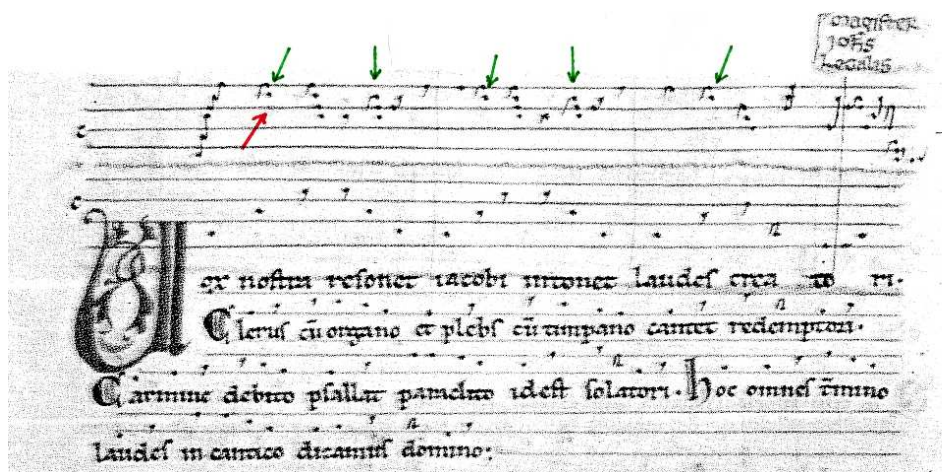 magister
Joħs
Legalis
Vox nostra resonet iacobi intonet laudes crea to ri.
Clerus cū organo et plebs cū timpano cantet redemptori.
Carmine debito psallat paraclito id est solatori. Hoc omnes t̄mino
laudes in cantico dicamus domino: